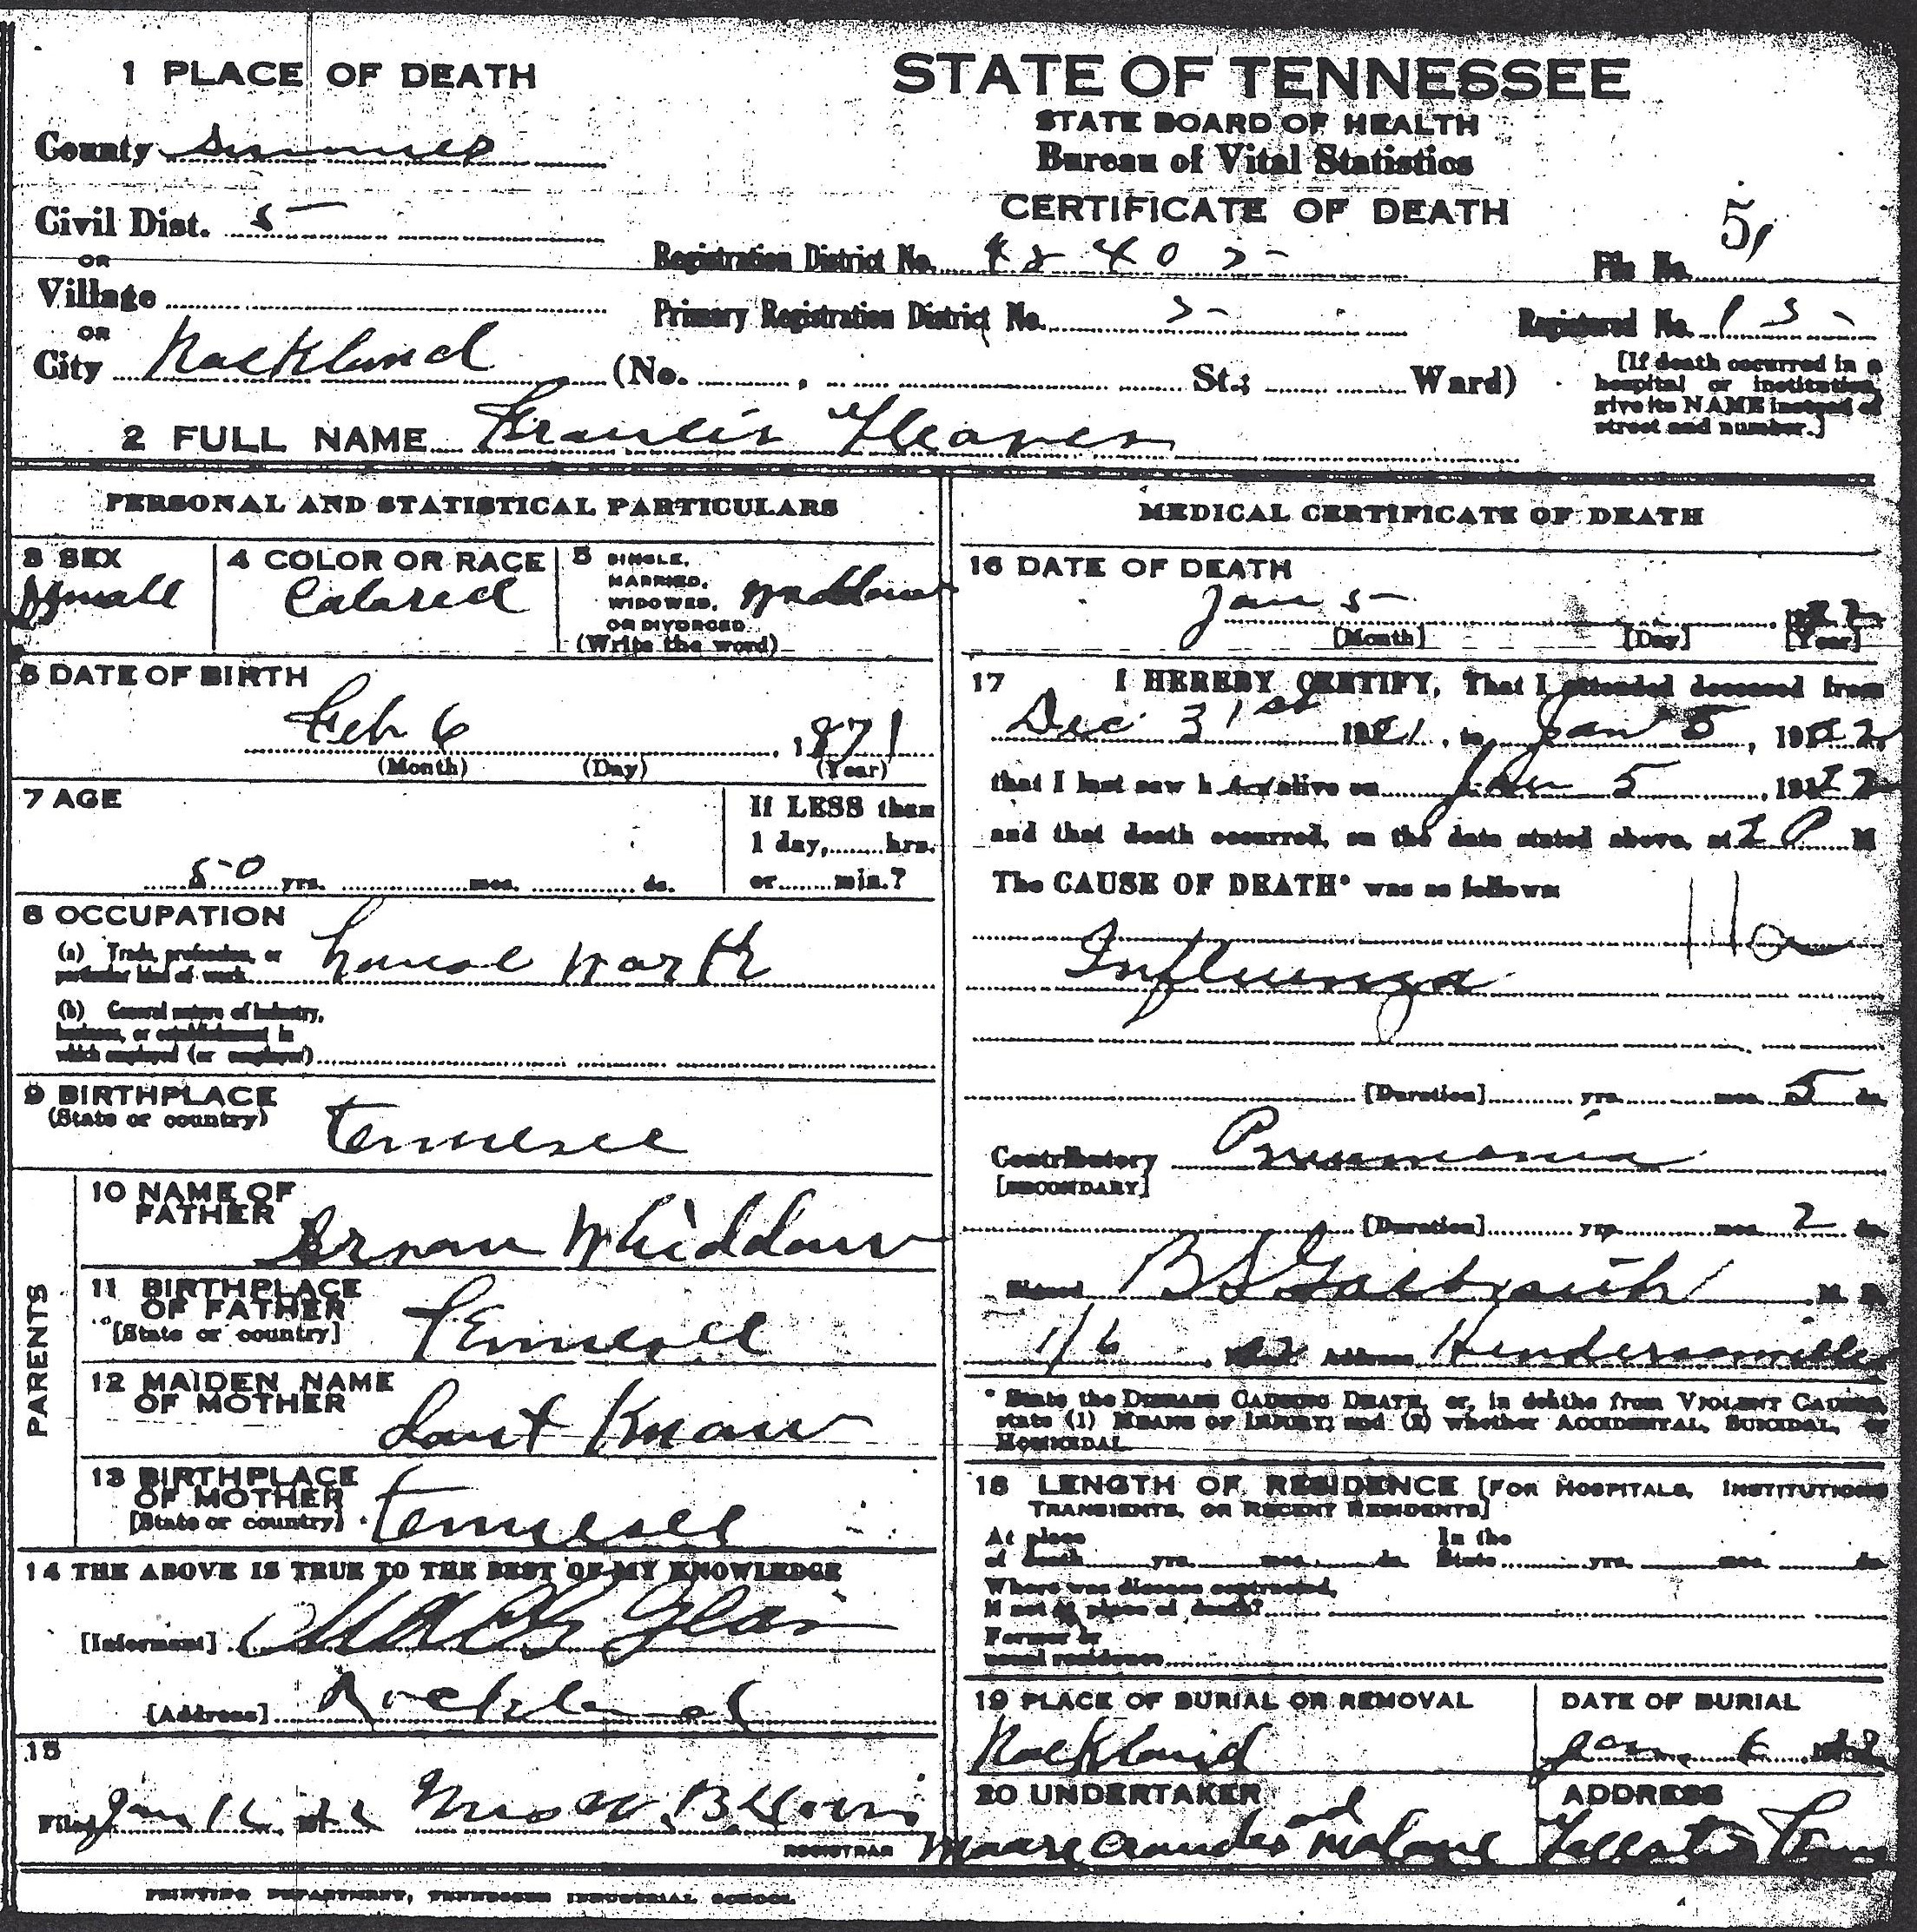 1 PLACE OF DEATH
County Sumner
Civil Dist. 5
OR
Village
OR
City Rockland (No. , St.; Ward)
STATE OF TENNESSEE
STATE BOARD OF HEALTH
Bureau of Vital Statistics
CERTIFICATE OF DEATH
Registration District No.
File No. 51
Primary Registration District No. 5
Registered No.
[If death occurred in a
hospital or institution,
give its NAME instead of
street and number.]
2 FULL NAME Francis
PERSONAL AND STATISTICAL PARTICULARS
3 SEX
4 COLOR OR RACE
Colored
5 SINGLE,
MARRIED,
WIDOWED,
OR DIVORCED
(Write the word)
6 DATE OF BIRTH
Feb 6 , 1871
(Month) (Day) (Year)
7 AGE
50 yrs. mos. ds.
If LESS than
1 day, hrs.
or min.?
8 OCCUPATION
(a) Trade, profession, or
particular kind of work house work
(b) General nature of industry,
business, or establishment in
which employed (or employer)
9 BIRTHPLACE
(State or country)
Tennesee
PARENTS
10 NAME OF
FATHER
11 BIRTHPLACE
OF FATHER
[State or country]
Tennesee
12 MAIDEN NAME
OF MOTHER
Dont Know
13 BIRTHPLACE
OF MOTHER
[State or country]
Tennesee
14 THE ABOVE IS TRUE TO THE BEST OF MY KNOWLEDGE
[Informant]
[Address] Rockland
15
Filed Jan
REGISTRAR
MEDICAL CERTIFICATE OF DEATH
16 DATE OF DEATH
Jan 5
[Month] [Day] [Year]
17 I HEREBY CERTIFY, That I attended deceased from
Dec 31st 1921, to Jan 5, 1922,
that I last saw her alive on Jan 5, 1922
and that death occurred, on the date stated above, at 2 P M
The CAUSE OF DEATH* was as follows
11a
Influenza
[Duration] yrs. mos. 5 ds.
Contributory Pneumonia
[SECONDARY]
[Duration] yrs. mos. 2 ds.
Signed B S Galbraith M. D.
1/6 Address Hendersonville
* State the DISEASE CAUSING DEATH, or, in deaths from VIOLENT CAUSES,
state (1) MEANS OF INJURY; and (2) whether ACCIDENTAL, SUICIDAL, or
HOMICIDAL.
18 LENGTH OF RESIDENCE [FOR HOSPITALS, INSTITUTIONS
TRANSIENTS, OR RECENT RESIDENTS]
At place In the
of death yrs. mos. ds. State yrs. mos. ds.
Where was disease contracted,
if not at place of death?
Former or
usual residence
19 PLACE OF BURIAL OR REMOVAL
Rockland
DATE OF BURIAL
Jan. 6
20 UNDERTAKER
and Malone
ADDRESS
PRINTING DEPARTMENT, TENNESSEE INDUSTRIAL SCHOOL